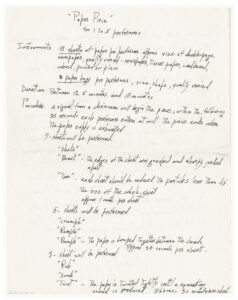 "Paper Piece"
for 1 to 5 performers
Instruments 15 sheets of paper per performer approx. size of double-page
newspaper, quality varied, newspaper, tissue paper, cardboard,
colored, printed or plain
3 paper bags per performer, size, shape, quality varied
Duration Between 10.5 minutes and 12 minutes
Procedure a signal from a chairman will begin the piece, within the following
30 seconds each performer enters at will. The piece ends when
the paper supply is exhausted
7 sheets will be performed
"shake"
"Break" - the edges of the sheet are grasped and sharply jerked
apart
"Tear" - each sheet should be reduced to particles less than 1/10
the size of the whole sheet
approx 1 min per sheet
5 - sheets will be performed
"crumple"
"Rumple"
"Bumple" - the paper is bumped together between the hands
approx 30 seconds per sheet
3 - sheets will be performed
"Rub"
"Scrub"
"Twist" - The paper is twisted tightly until a squeaking
sound is produced approx 30 seconds per sheet